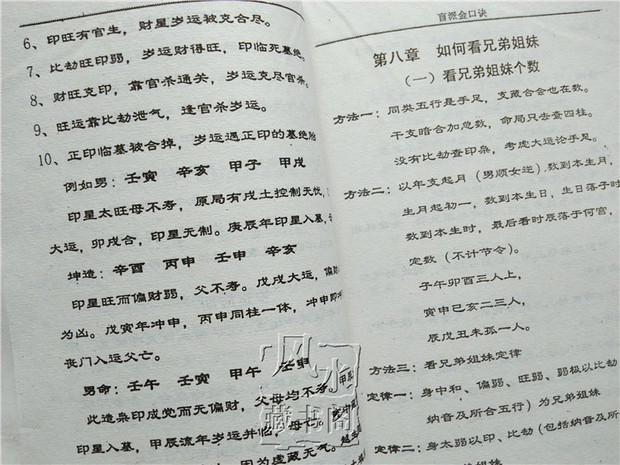 6、印旺有官生，财星岁运被克合尽。
7、比劫旺印弱，岁运财得旺，印临死墓绝。
8、财旺克印，靠官杀通关，岁运克尽官杀。
9、旺运靠比劫泄气，逢官杀岁运。
10、正印临墓被合掉，岁运遇正印的墓绝
例如男：壬寅 辛亥 甲子 甲戌
印星太旺母不寿，原局有戌土控制无忧，
大运，卯戌合，印星无制。庚辰年印星入墓，
坤造：辛酉 丙申 壬申 辛亥
印星旺而偏财弱，父不寿。戊戌大运，偏
为凶。戊寅年冲申，丙申同柱一体，冲申即
丧门入运父亡。
男命：壬午 壬寅 甲午 壬申
此造枭印成党而无偏财，父母均不寿。甲辰
印星入墓，甲辰流年岁运并临，母亡。
因为虚藏无气。
盲派金口诀
第八章 如何看兄弟姐妹
（一）看兄弟姐妹个数
方法一：同类五行是手足，支藏合会也在数。
干支暗合加总数，命局只去查四柱。
没有比劫查印枭，考虑大运论手足。
方法二：以年支起月（男顺女逆）数到本生月，
生月起初一，数到本生日，生日落子时
数到本生时，最后看时辰落于何宫，
定数（不计节令）。
子午卯酉三人上，
寅申巳亥二三人，
辰戌丑未孤一人。
方法三：看兄弟姐妹定律
定律一：身中和、偏弱、旺弱、弱极以比劫
纳音及所合五行）为兄弟姐妹
定律二：身太弱以印、比劫（包括纳音及所
姐妹
风水
藏书阁